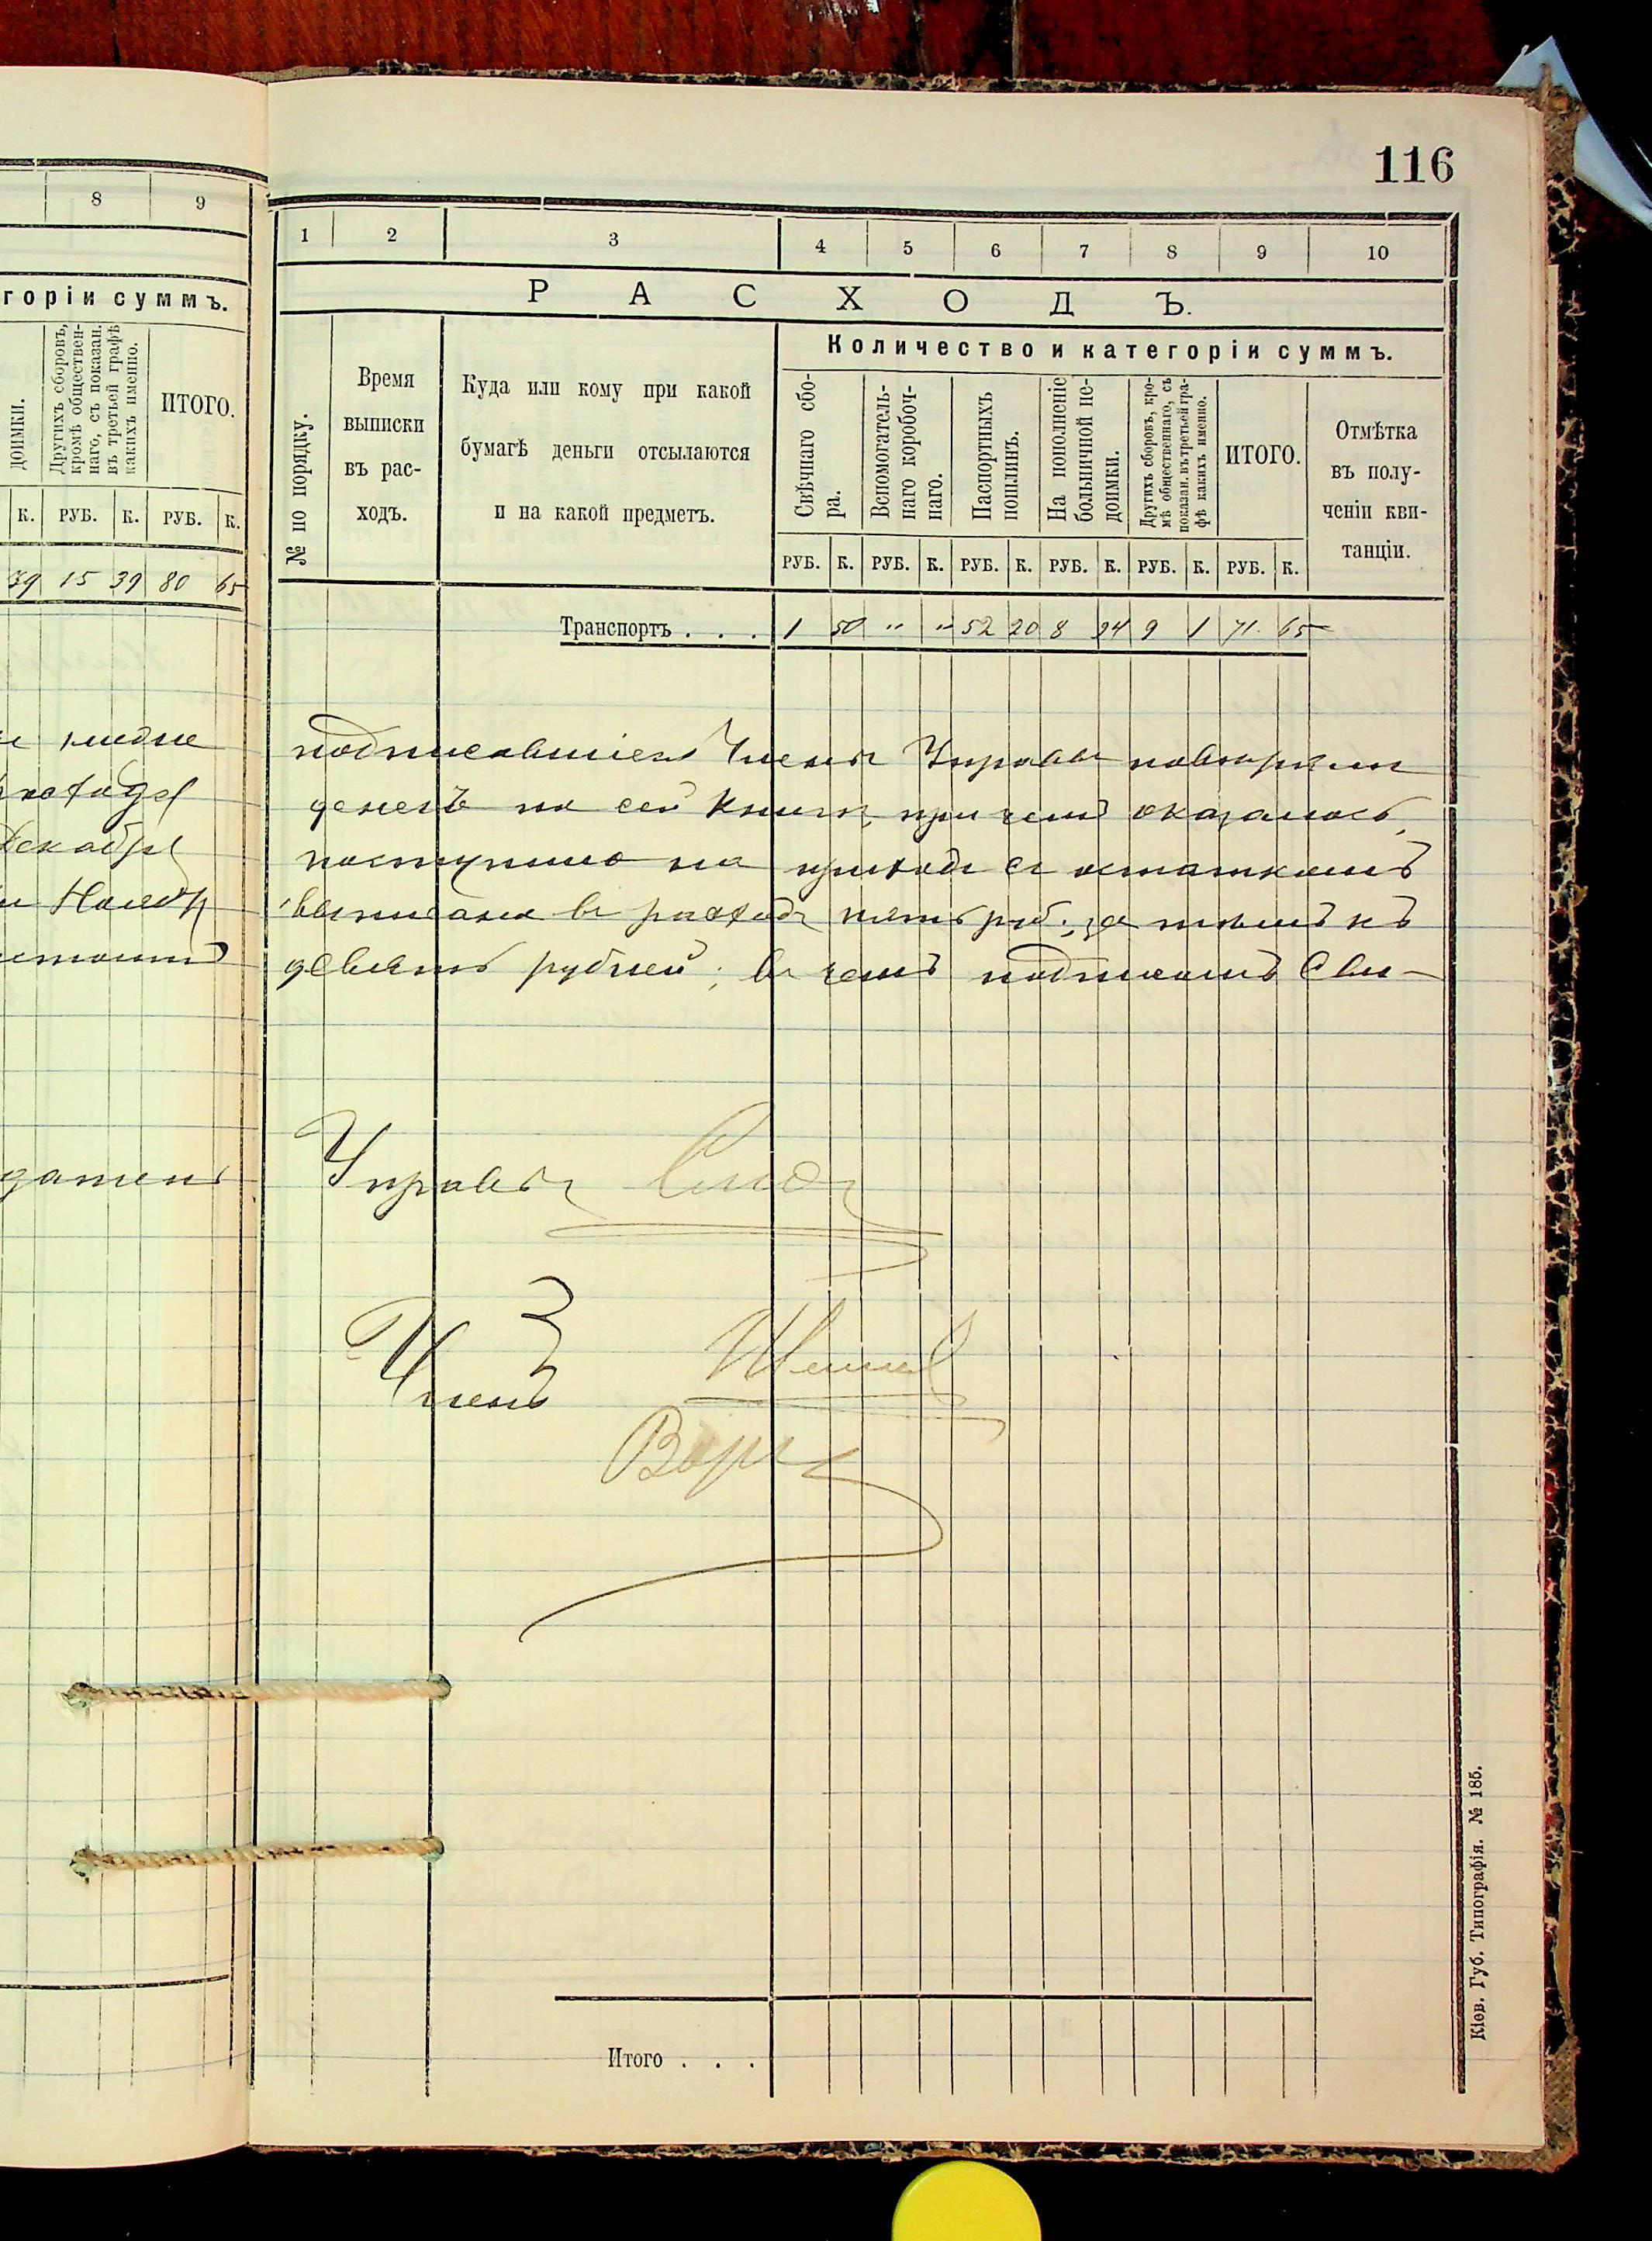 8 9
горіи суммъ.
доимки.
Другихъ сборовъ,
кромѣ обществен-
наго, съ показан.
въ третьей графѣ
какихъ именно.
ИТОГО.
К. РУБ. К. РУБ. К.
39 15 39 80 65
Декабря
116
1 2 3 4 5 6 7 8 9 10
РАСХОДЪ.
№ по порядку.
Время
выписки
въ рас-
ходъ.
Куда или кому при какой
бумагѣ деньги отсылаются
и на какой предметъ.
Количество и категоріи суммъ.
Свѣчнаго сбо-
ра.
Вспомогатель-
наго коробоч-
наго.
Паспортныхъ
пошлинъ.
На пополненіе
больничной не-
доимки.
Другихъ сборовъ, кро-
мѣ общественнаго, съ
показан. въ третьей гра-
фѣ какихъ именно.
ИТОГО.
Отмѣтка
въ полу-
ченіи кви-
танціи.
РУБ. К. РУБ. К. РУБ. К. РУБ. К. РУБ. К. РУБ. К.
Транспортъ . . . 1 50 " " 52 20 8 94 9 1 71 65
подписавшіеся Члены Управы повѣряли
денегъ по сей книгѣ, при чемъ оказалось,
поступило на приходъ съ остаткомъ
выписано въ расходъ пять руб.; за тѣмъ къ
девять рублей; въ чемъ подписомъ сви-
датель
Управы
Членъ
Итого . . .
Кіев. Губ. Типографія. № 185.